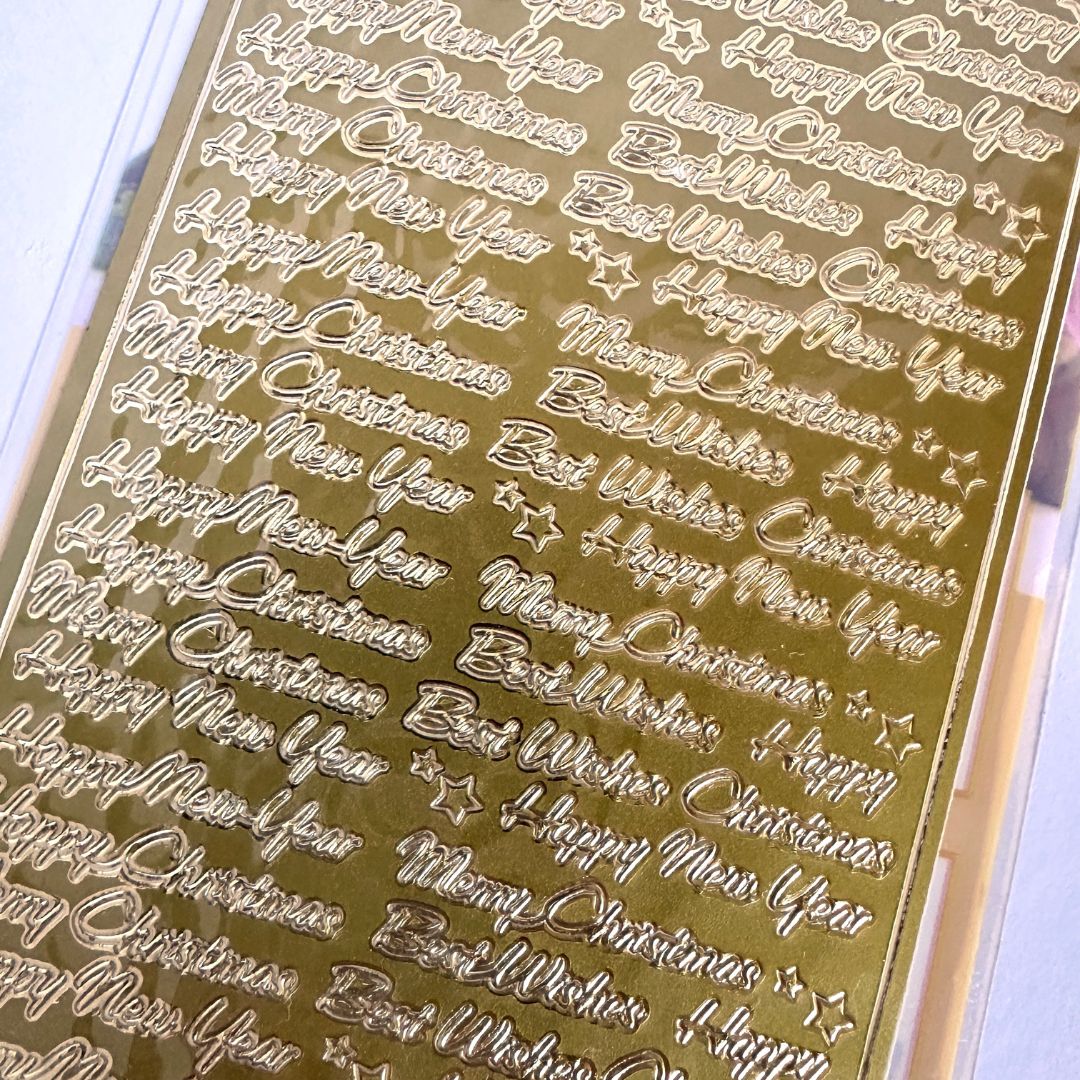 Year Wishes Christmas
Happy New-Year Happy New Year
Happy Christmas Merry Christmas
Merry Christmas Best Wishes Happy
Happy New Year Best Wishes Christmas
Happy New-Year Happy New Year
Happy Christmas Merry Christmas
Merry Christmas Best Wishes Happy
Happy New Year Best Wishes Christmas
Happy New-Year Happy New Year
Happy Christmas Merry Christmas
Merry Christmas Best Wishes Happy
Happy New Year Best Wishes Christmas
Happy New-Year Happy New Year
Happy Christmas Merry Christmas
Christmas Best Wishes Happy
New Year Best Wishes